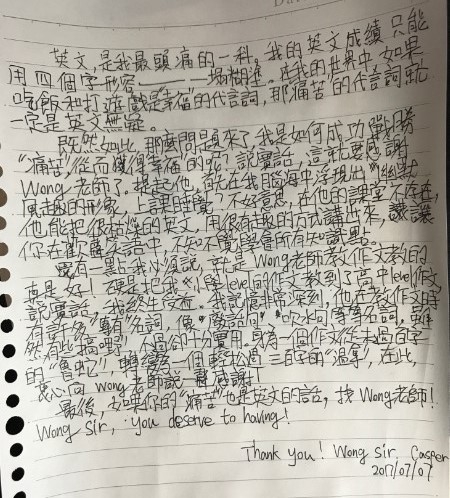 英文，是我最頭痛的一科。我的英文成績只能
用四個字形容——一塌糊塗。在我的世界中，如果
吃飯和打遊戲是"幸福"的代言詞，那痛苦的代言詞就
一定是英文無疑。
既然如此，那麼問題來了，我是如何成功戰勝
"痛苦"，從而獲得幸福的呢？說實話，這就要感謝
Wong老師了，提起他，就在我腦海中浮現出"幽默
風趣"的形象，上課時覺不好意思，在他的課堂不存在，
他能把很枯燥的英文，用很有趣的方式講出來，讓
你在歡聲笑語中，不知不覺學會所有知識點。
還有一點我必須說，就是Wong老師教作文教的
真是好！硬是把我"小學level"的作文教到了高中level作文，
說實話，我終生受益。我記憶非常深刻，他在教作文時
有許多"專有"名詞，像"廢話句""吹水句"等名詞，雖
然有些搞嘢，不過卻十分實用。身為一個作文從未過百字
的"魯蛇"，轉變了一個輕松過三百字的"溫拿"，在此，
衷心向wong老師說一聲感謝！
最後，如果你的"痛苦"也是英文的話，找Wong老師！
Wong sir, you deserve to having!
Thank you! Wong sir, Casper
2017/07/07